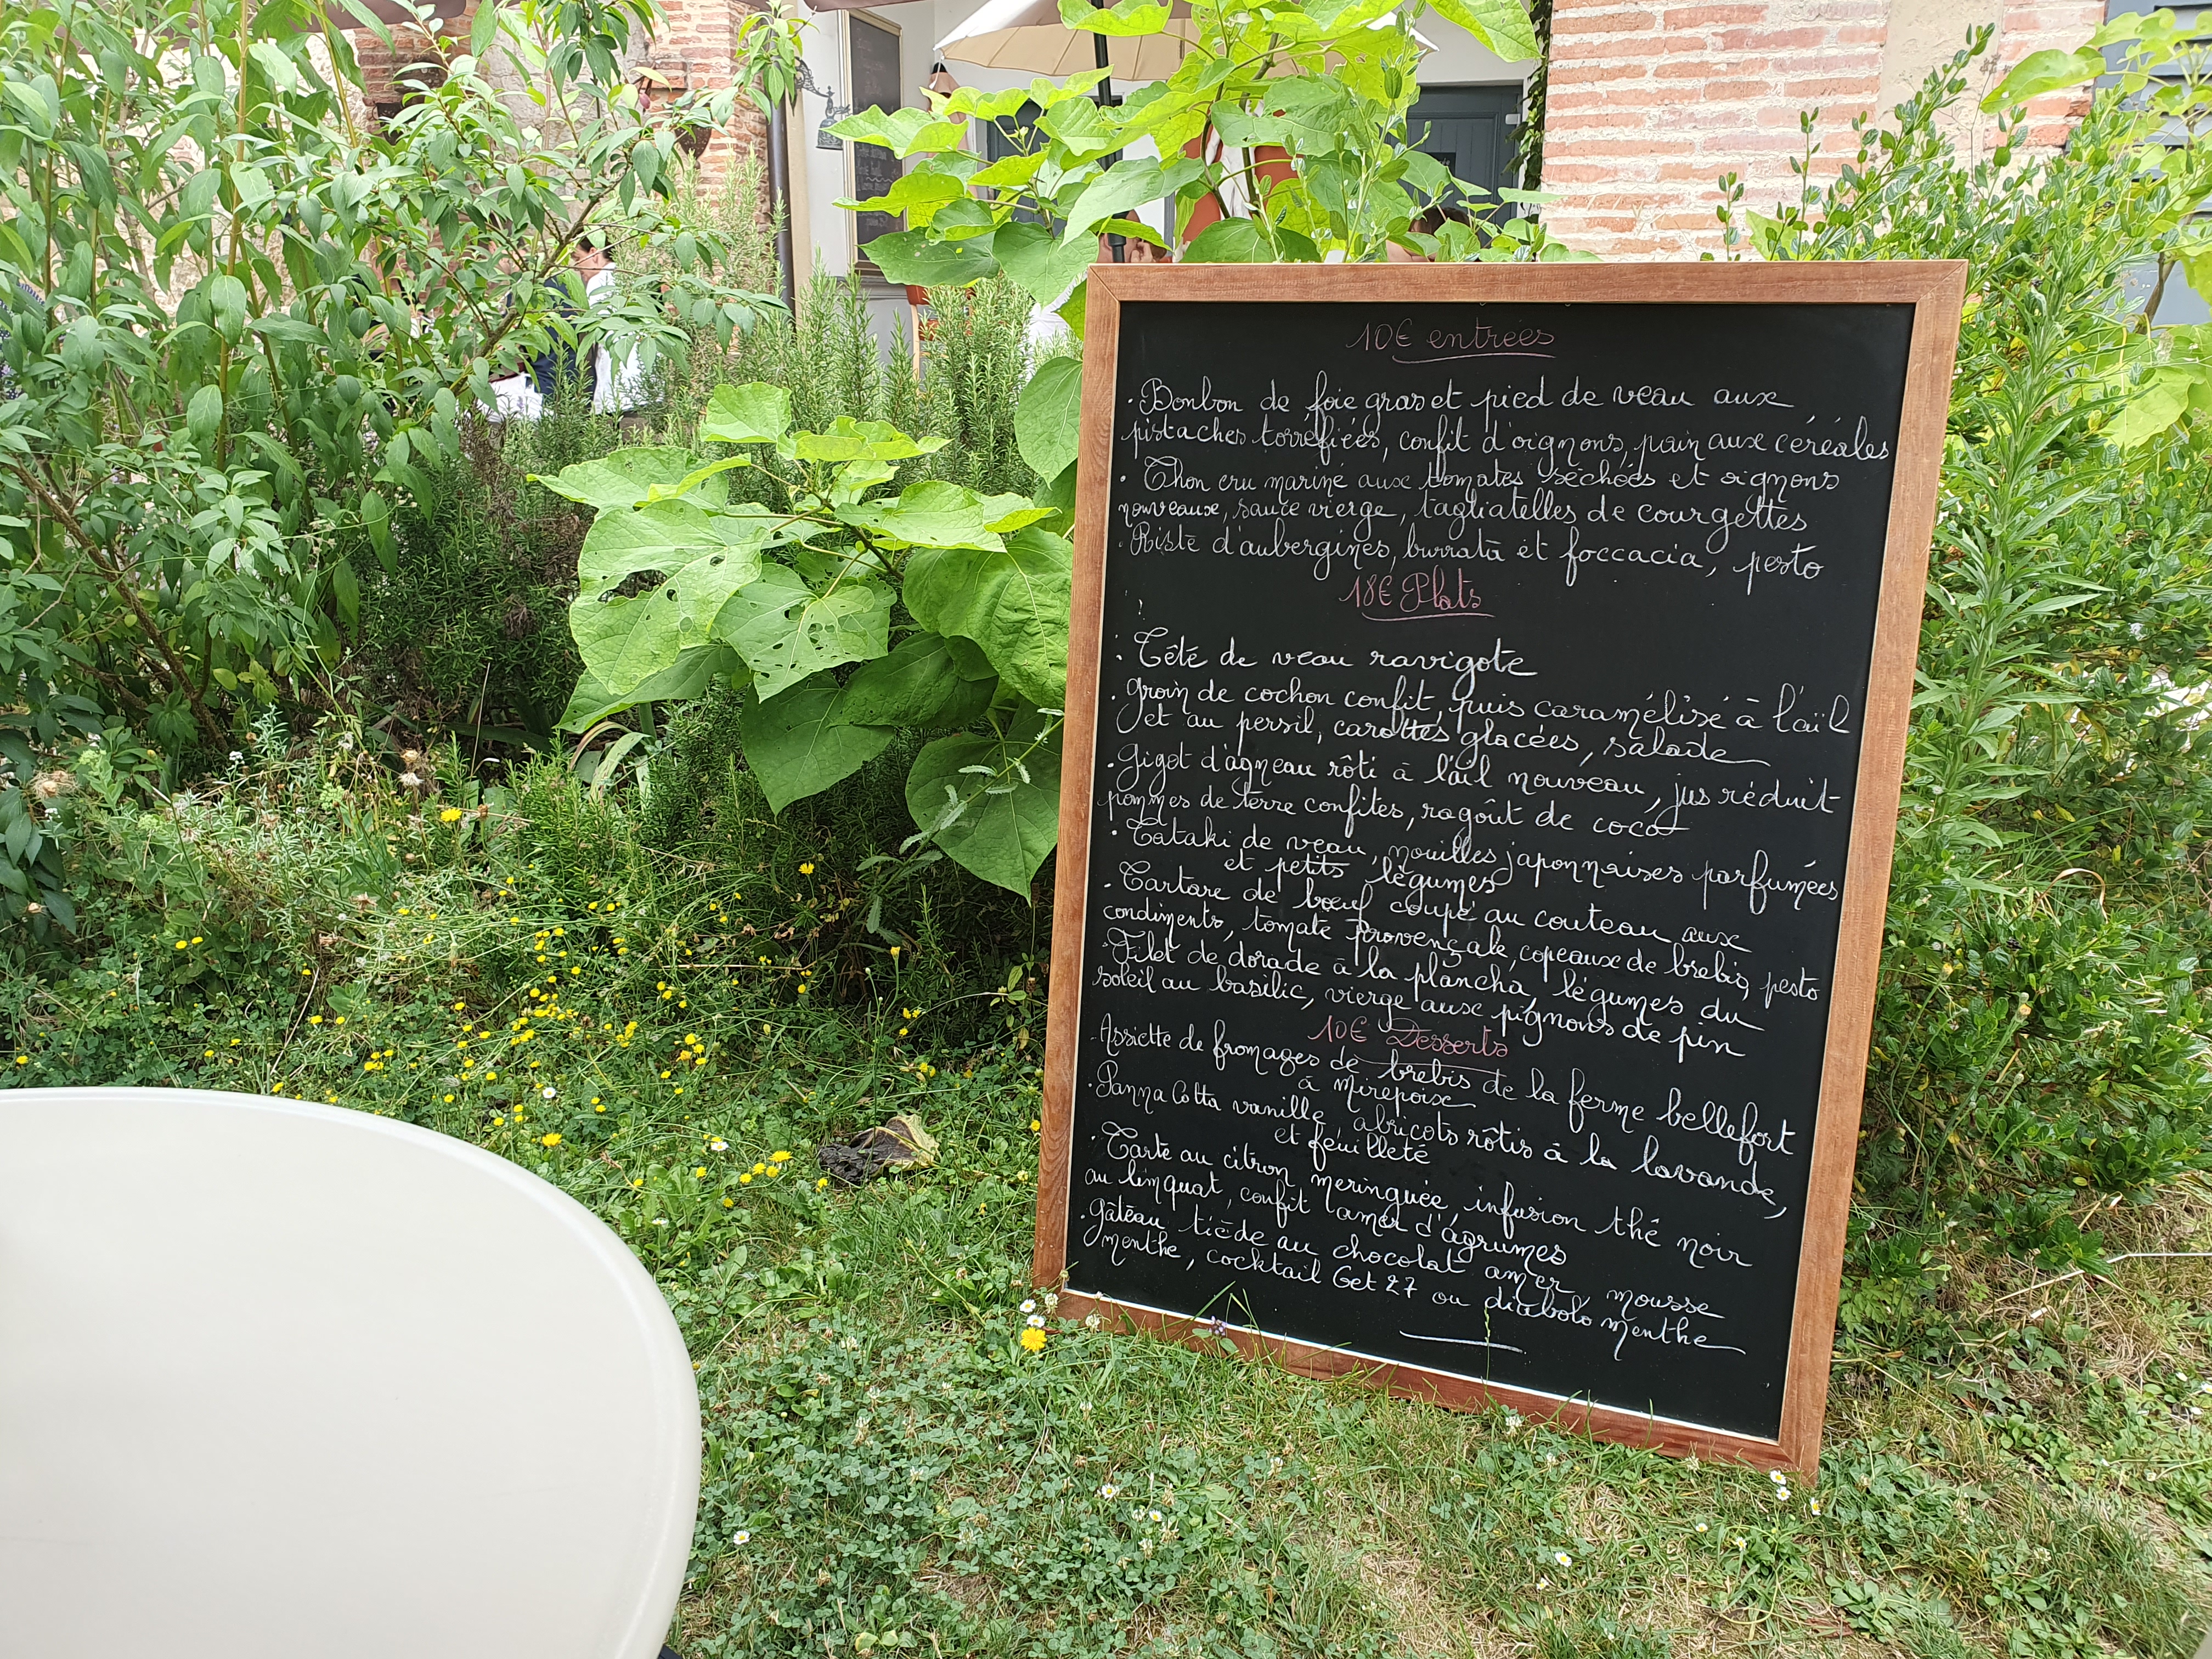 10€ entrées
• Bonbon de foie gras et pied de veau aux
pistaches torréfiées, confit d'oignons, pain aux céréales
• Thon cru mariné aux tomates séchées et oignons
nouveaux, sauce vierge, tagliatelles de courgettes
• Risté d'aubergines, burrata et foccacia, pesto
18€ Plats
• Tête de veau ravigote
• Groin de cochon confit, puis caramélisé à l'aïl
et au persil, carottes glacées, salade
• Gigot d'agneau rôti à l'ail nouveau, jus réduit
pommes de terre confites, ragoût de coco
• Tataki de veau, nouilles japonnaises parfumées
et petits légumes
• Tartare de bœuf coupé au couteau aux
condiments, tomate provençale, copeaux de brebis, pesto
• Filet de dorade à la plancha, légumes du
soleil au basilic, vierge aux pignons de pin
10€ Desserts
• Assiette de fromages de brebis de la ferme bellefort
à Mirepoix
• Panna Cotta vanille, abricots rôtis à la lavande,
et feuilleté
• Tarte au citron meringuée, infusion thé noir
au limquat, confit amer d'agrumes
• Gâteau tiède au chocolat amer, mousse
menthe, cocktail Get 27 ou diabolo menthe